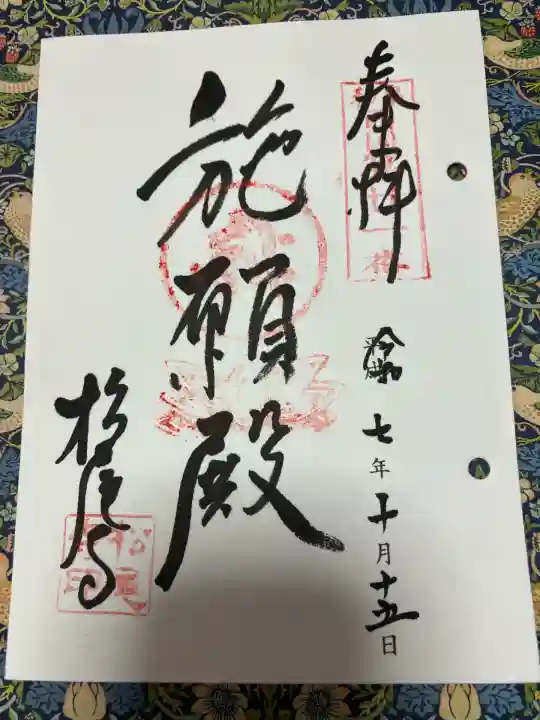 奉拝
令和 七年十月十五日
施願殿
松尾寺